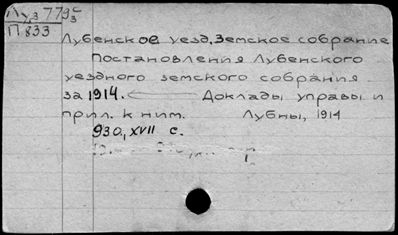 Лу 3 779 с/3
П 833
Лубенское уезд. Земское собрание
Постановления Лубенского
уездного земского собрания
за 1914. Доклады управы и
прил. к ним. Лубны, 1914
930, XVII с.